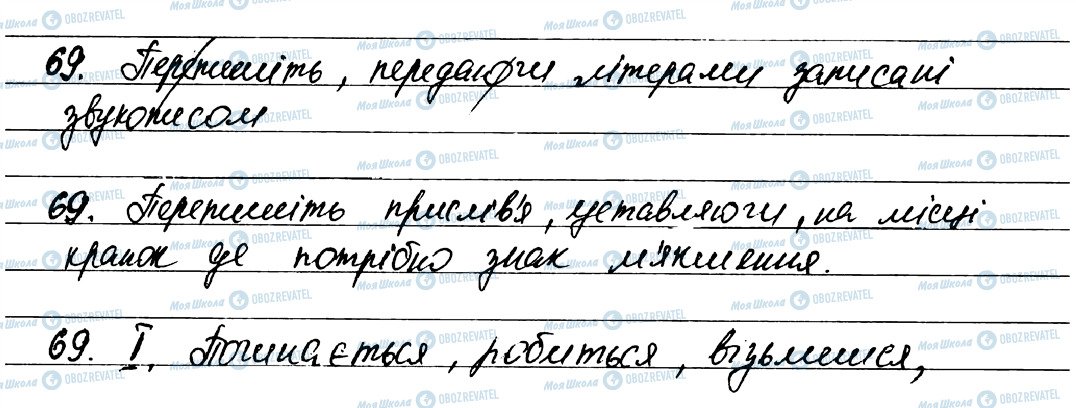 69. Перепишіть, передаючи літерами записані
звукописом
69. Перепишіть прислів'я, уставляючи, на місці
крапок де потрібно знак м'якшення.
69. I. Починається, робиться, візьмешся,